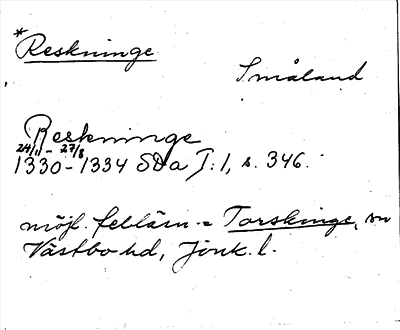 *Reskninge
Småland
Reskninge
24/11 - 27/8
1330-1334 SDa I:1, s. 346.
möjl. felläsn = Torskinge, sn
Västbo hd, Jönk. l.